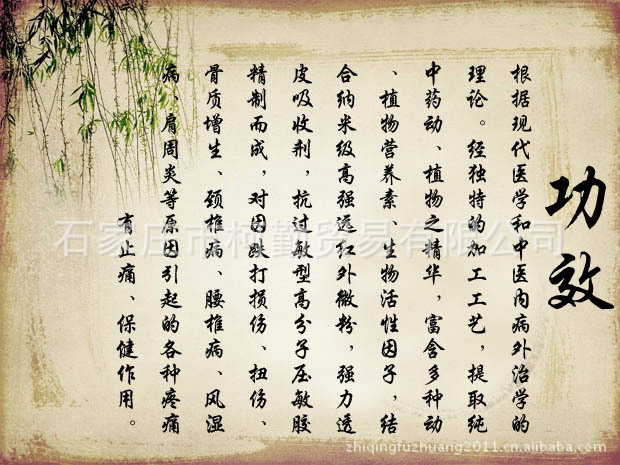 功效
根据现代医学和中医内病外治学的
理论。经独特的加工工艺，提取纯
中药动、植物之精华，富含多种动
、植物营养素、生物活性因子，结
合纳米级高强远红外微粉，强力透
皮吸收剂，抗过敏型高分子压敏胶
精制而成，对因跌打损伤、扭伤、
骨质增生、颈椎病、腰椎病、风湿
病、肩周炎等原因引起的各种疼痛
有止痛、保健作用。
石家庄市柯勤贸易有限公司
zhiqingfuzhuang2011.cn.alibaba.com